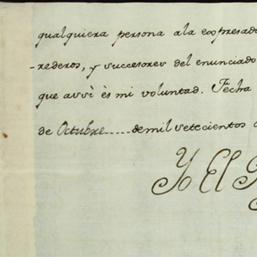 qualquiera persona ala expresad
-rederos, y successores del enunciado
que assi ès mi voluntad. Fecha
de Octubre mil setecientos
Yo El